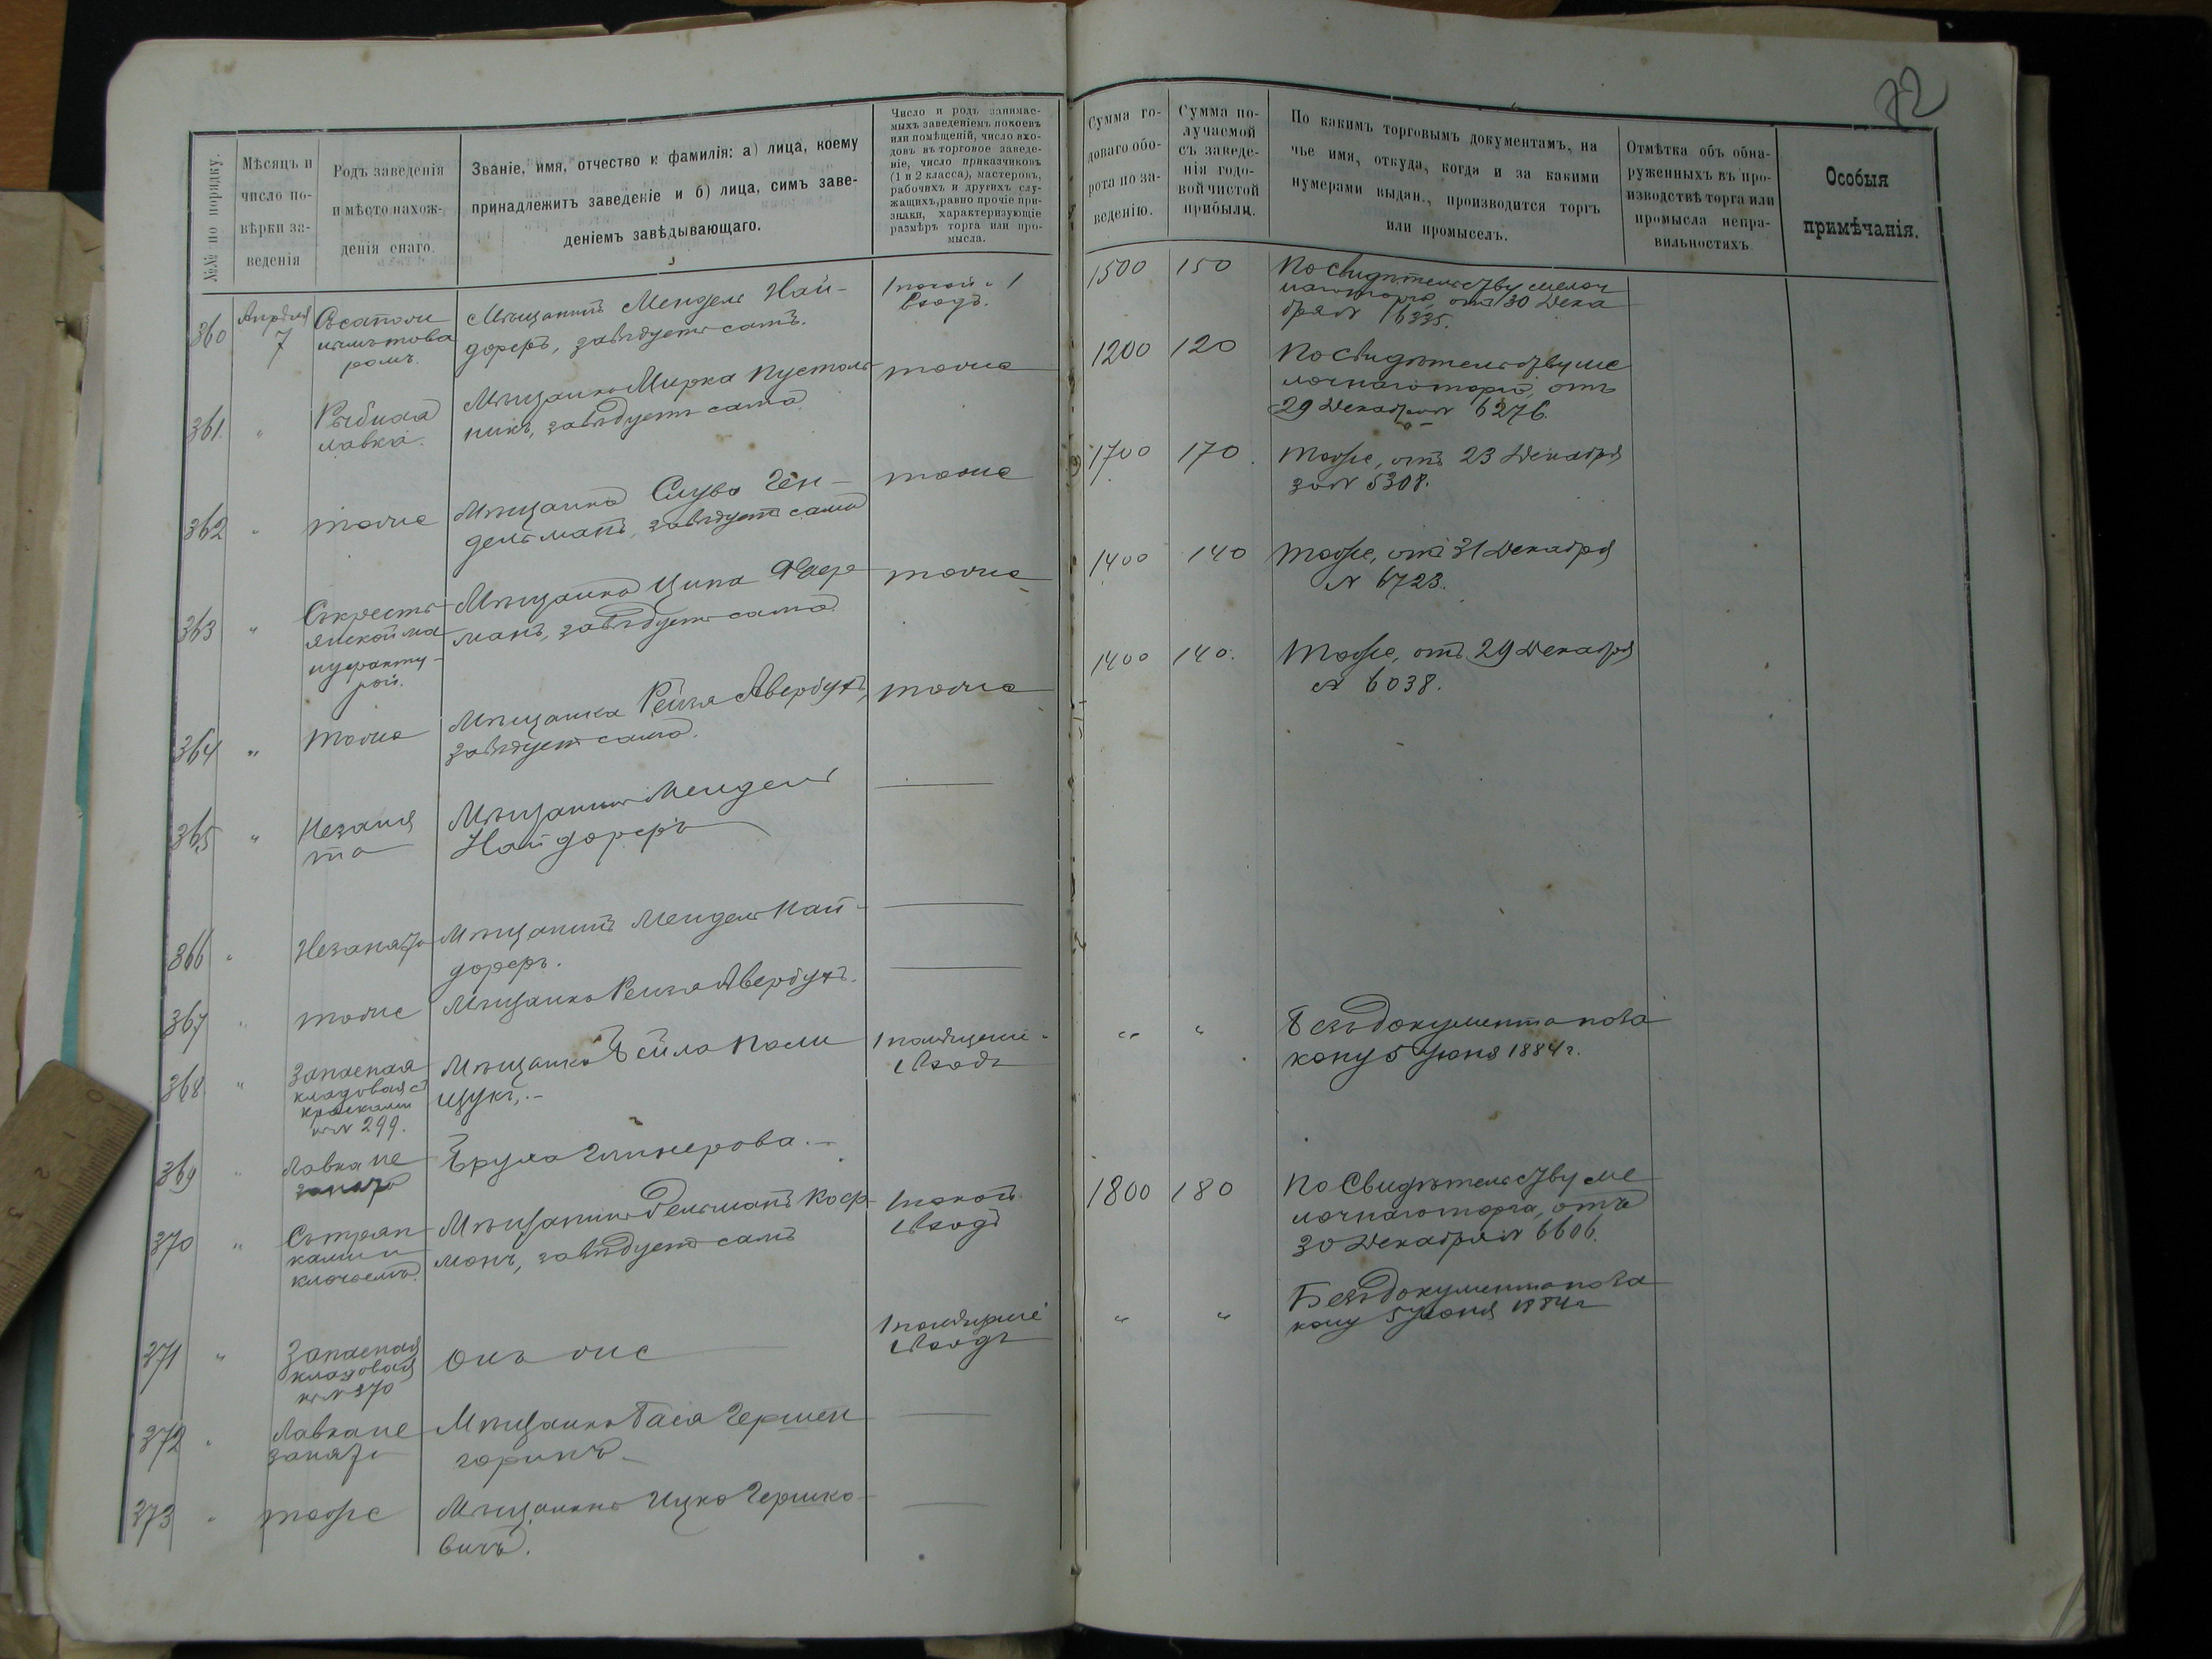 72
№№ по порядку.
Мѣсяцъ и
число по-
вѣрки за-
веденія
Родъ заведенія
и мѣсто нахож-
денія онаго.
Званіе, имя, отчество и фамилія: а) лица, коему
принадлежитъ заведеніе и б) лица, симъ заве-
деніемъ завѣдывающаго.
Число и родъ занимае-
мыхъ заведеніемъ покоевъ
или помѣщеній, число вхо-
довъ въ торговое заведе-
ніе, число приказчиковъ
(1 и 2 класса), мастеровъ,
рабочихъ и другихъ слу-
жащихъ, равно прочіе при-
знаки, характеризующіе
размѣръ торга или про-
мысла.
Сумма го-
доваго обо-
рота по за-
веденію.
Сумма по-
лучаемой
съ заведе-
нія годо-
вой чистой
прибыли.
По какимъ торговымъ документамъ, на
чье имя, откуда, когда и за какими
нумерами выдан., производится торгъ
или промыселъ.
Отмѣтка объ обна-
руженныхъ въ про-
изводствѣ торга или
промысла непра-
вильностяхъ
Особыя
примѣчанія.
360
Апрѣля
7
товa
ромъ.
Мѣщанинъ Мендель Най-
дорфъ, завѣдуетъ самъ.
1 покой и 1
входъ.
1500
150
По свидѣтельству мелоч
наго торга, отъ 30 Дека
бря № 6335.
361.
"
Рыбная
лавка.
Мѣщанка Мирка Пустоль
никъ, завѣдуетъ сама
тоже
1200
120
По свидѣтельству ме
лочнаго торга, отъ
29 Декабря № 6276.
362
"
тоже
Мѣщанка Слува Ген-
дельманъ, завѣдуетъ сама
тоже
1700
170.
Тоже, отъ 23 Декабря
за № 5308.
363
"
Съ кресть
янской ма
нуфакту-
рой.
Мѣщанка Ципа
манъ, завѣдуетъ сама.
тоже
1400
140
Тоже, отъ 31 Декабря
№ 6723.
364
"
тоже
Мѣщанка Рейзя Авербухъ,
завѣдуетъ сама.
тоже
1400
140.
Тоже, отъ 29 Декабря
№ 6038.
365
"
Незаня
та
Мѣщанинъ Мендель
Найдорфъ
366
"
Незанята
Мѣщанинъ Мендель Най-
дорфъ.
367
"
тоже
Мѣщанка Рейзя Авербухъ.
368
"
Запасная
кладовая съ
красками
къ № 299.
Мѣщанка Бейла Поли
щукъ,.-
1 помѣщеніе
1 входъ
"
"
Безъ документа по за
кону 5 Іюня 1884 г.
369
"
Лавка не
занята
Брума Глинерова.-
370
"
Съ тряп
ками и
клочьемъ.
Мѣщанинъ Гельманъ Коф
манъ, завѣдуетъ самъ
1 покой
1 входъ
1800
180
По Свидѣтельству ме
лочнаго торга, отъ
30 Декабря № 6606.
371
"
Запасная
кладовая
къ № 370
Онъ же
1 помѣщеніе
1 входъ
"
"
Безъ документа по за
кону 5 Іюня 1884 г
372
"
Лавка не
занята
Мѣщанка Бася Гершен
горинъ
373
"
тоже
Мѣщанинъ Ицко Гершко-
вичъ.